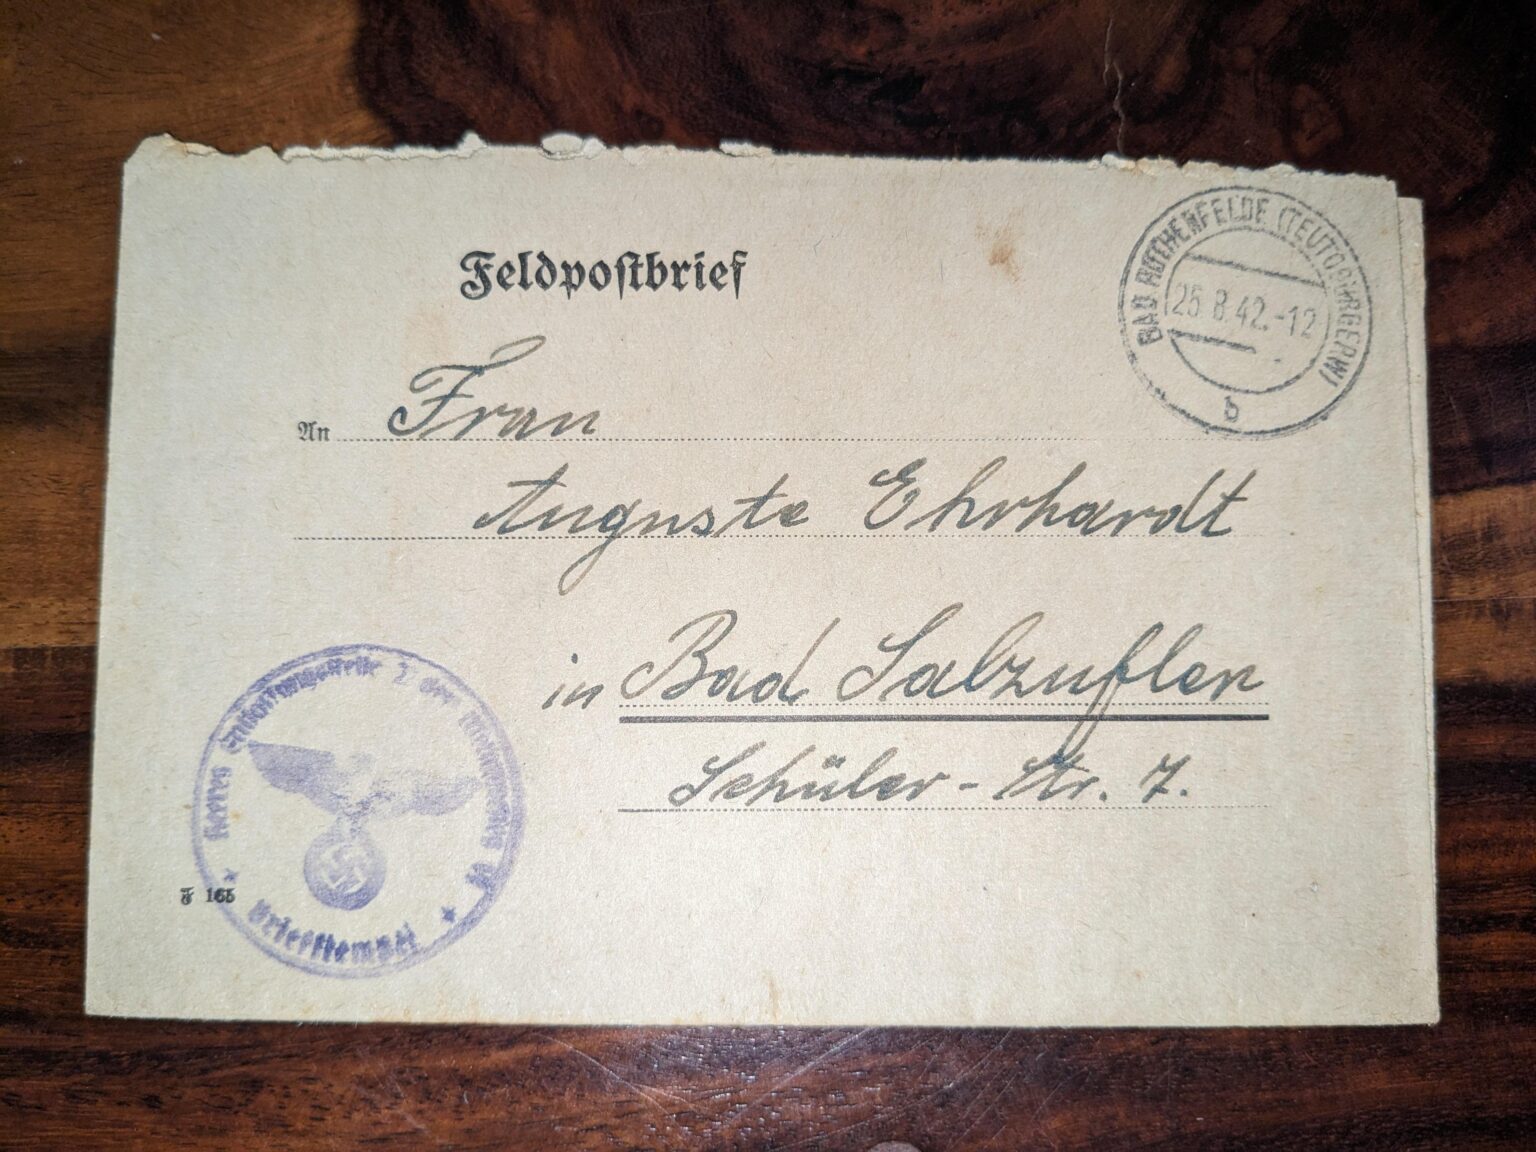 Feldpostbrief
BAD ROTHENFELDE (TEUTOBURGERW)
25.8.42.-12
b
An Frau
Auguste Ehrhardt
in Bad Salzuflen
Schüler-Str. 7.
der
Briefstempel
F 165